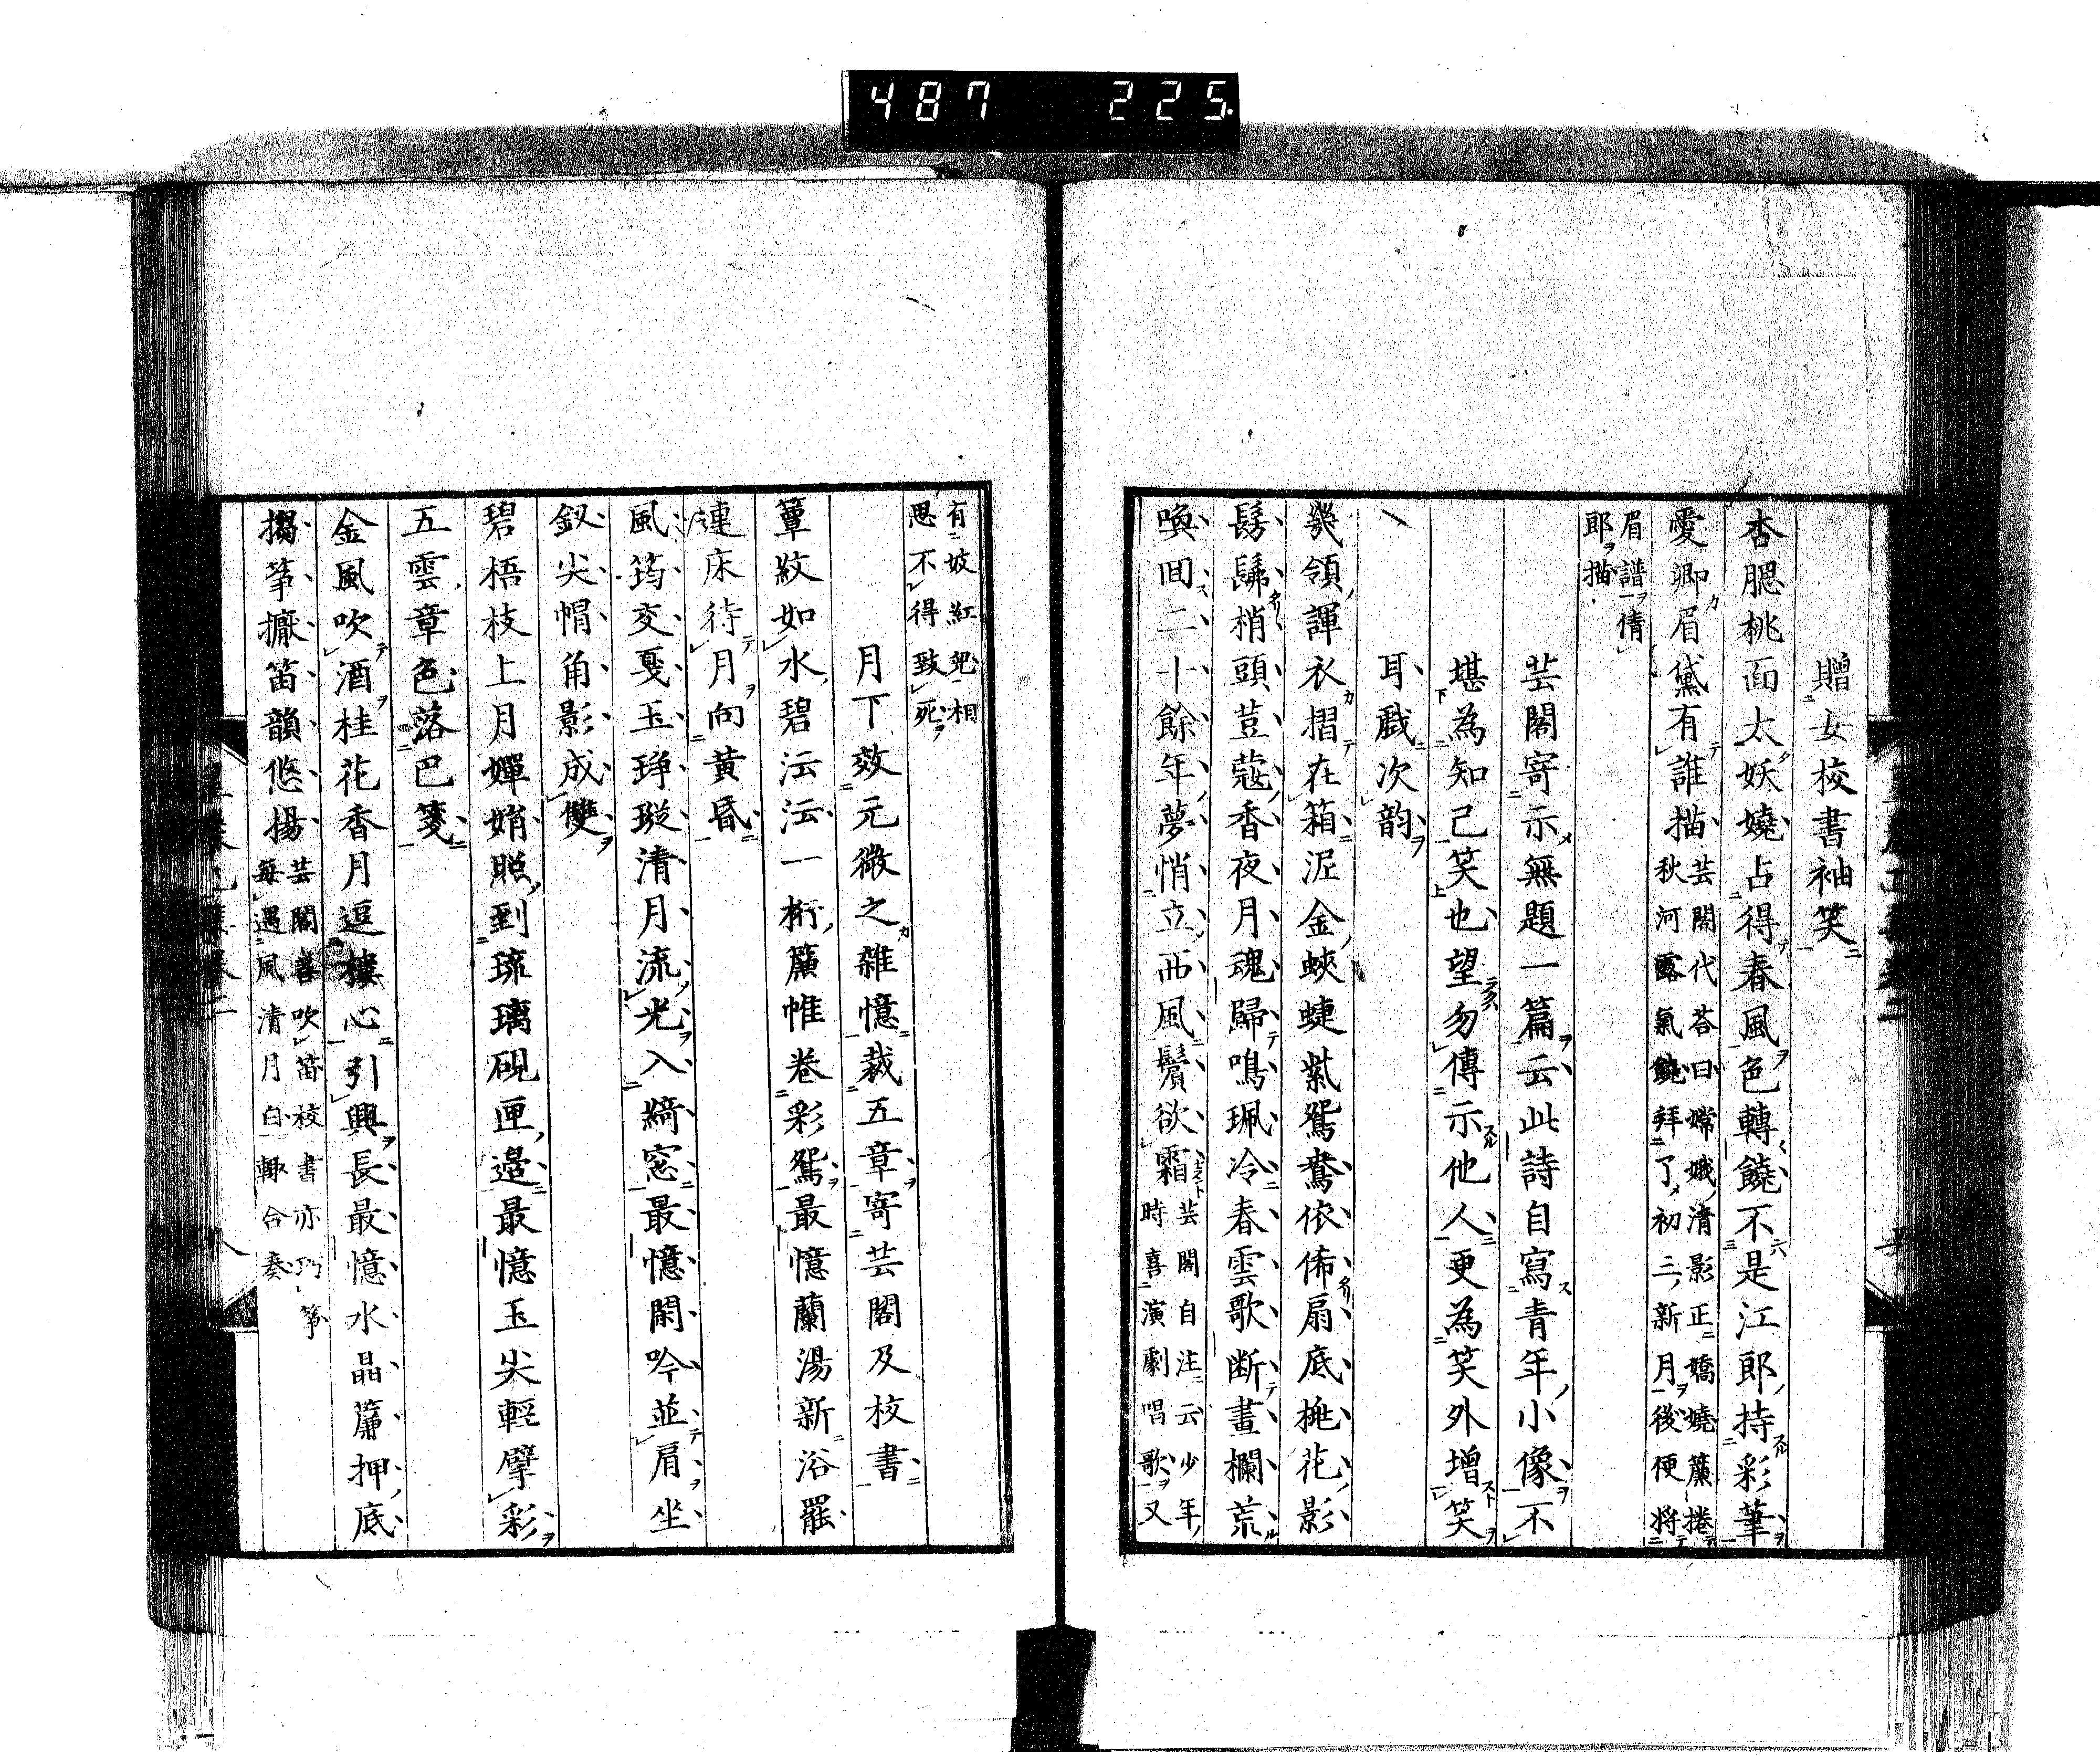 487 225
贈女校書袖笑
杏腮桃面太妖嬈占得春風色轉饒不是江郎持彩筆
愛卿眉黛有誰描芸閣代荅曰嫦娥清影正嬌嬈簾捲
秋河露氣饒拜了初三新月後便将
眉譜倩
郎描
芸閣寄示無題一篇云此詩自寫青年小像不
堪為知己笑也望勿傳示他人更為笑外增笑
耳戱次韵
幾領譚衣摺在箱泥金蛺蝶紫鴛鴦依俙扇底桃花影
髣髴梢頭荳蔻香夜月魂歸鳴珮冷春雲歌断畫欄荒
喚回二十餘年夢悄立西風鬢欲霜芸閣自注云少年
時喜演劇唱歌又
有妓紅兒相
思不得致死
月下效元微之雜憶裁五章寄芸閣及校書
蕈紋如水碧沄沄一桁簾帷卷彩鴛最憶蘭湯新浴罷
連床待月向黃昏
風筠交戛玉琤瑽清月流光入綺窓最憶閑吟並肩坐
釵尖帽角影成雙
碧梧枝上月嬋娟照到琉璃硯匣邉最憶玉尖輕擘彩
五雲章色落巴箋
金風吹酒桂花香月逗樓心引興長最憶水晶簾押底
搊筝擫笛韻悠揚芸閣善吹笛校書亦巧筝
每遇風清月白輙合奏
八